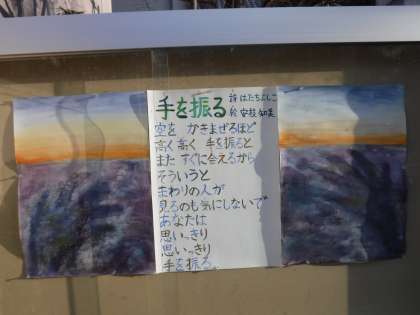 手を振る
詩 はたちよしこ
絵 安枝 知美
空を かきまぜるほど
高く高く 手を振ると
また すぐに会えるから
そういうと
まわりの人が
見るのも気にしないで
あなたは
思いっきり
思いっきり
手を振る